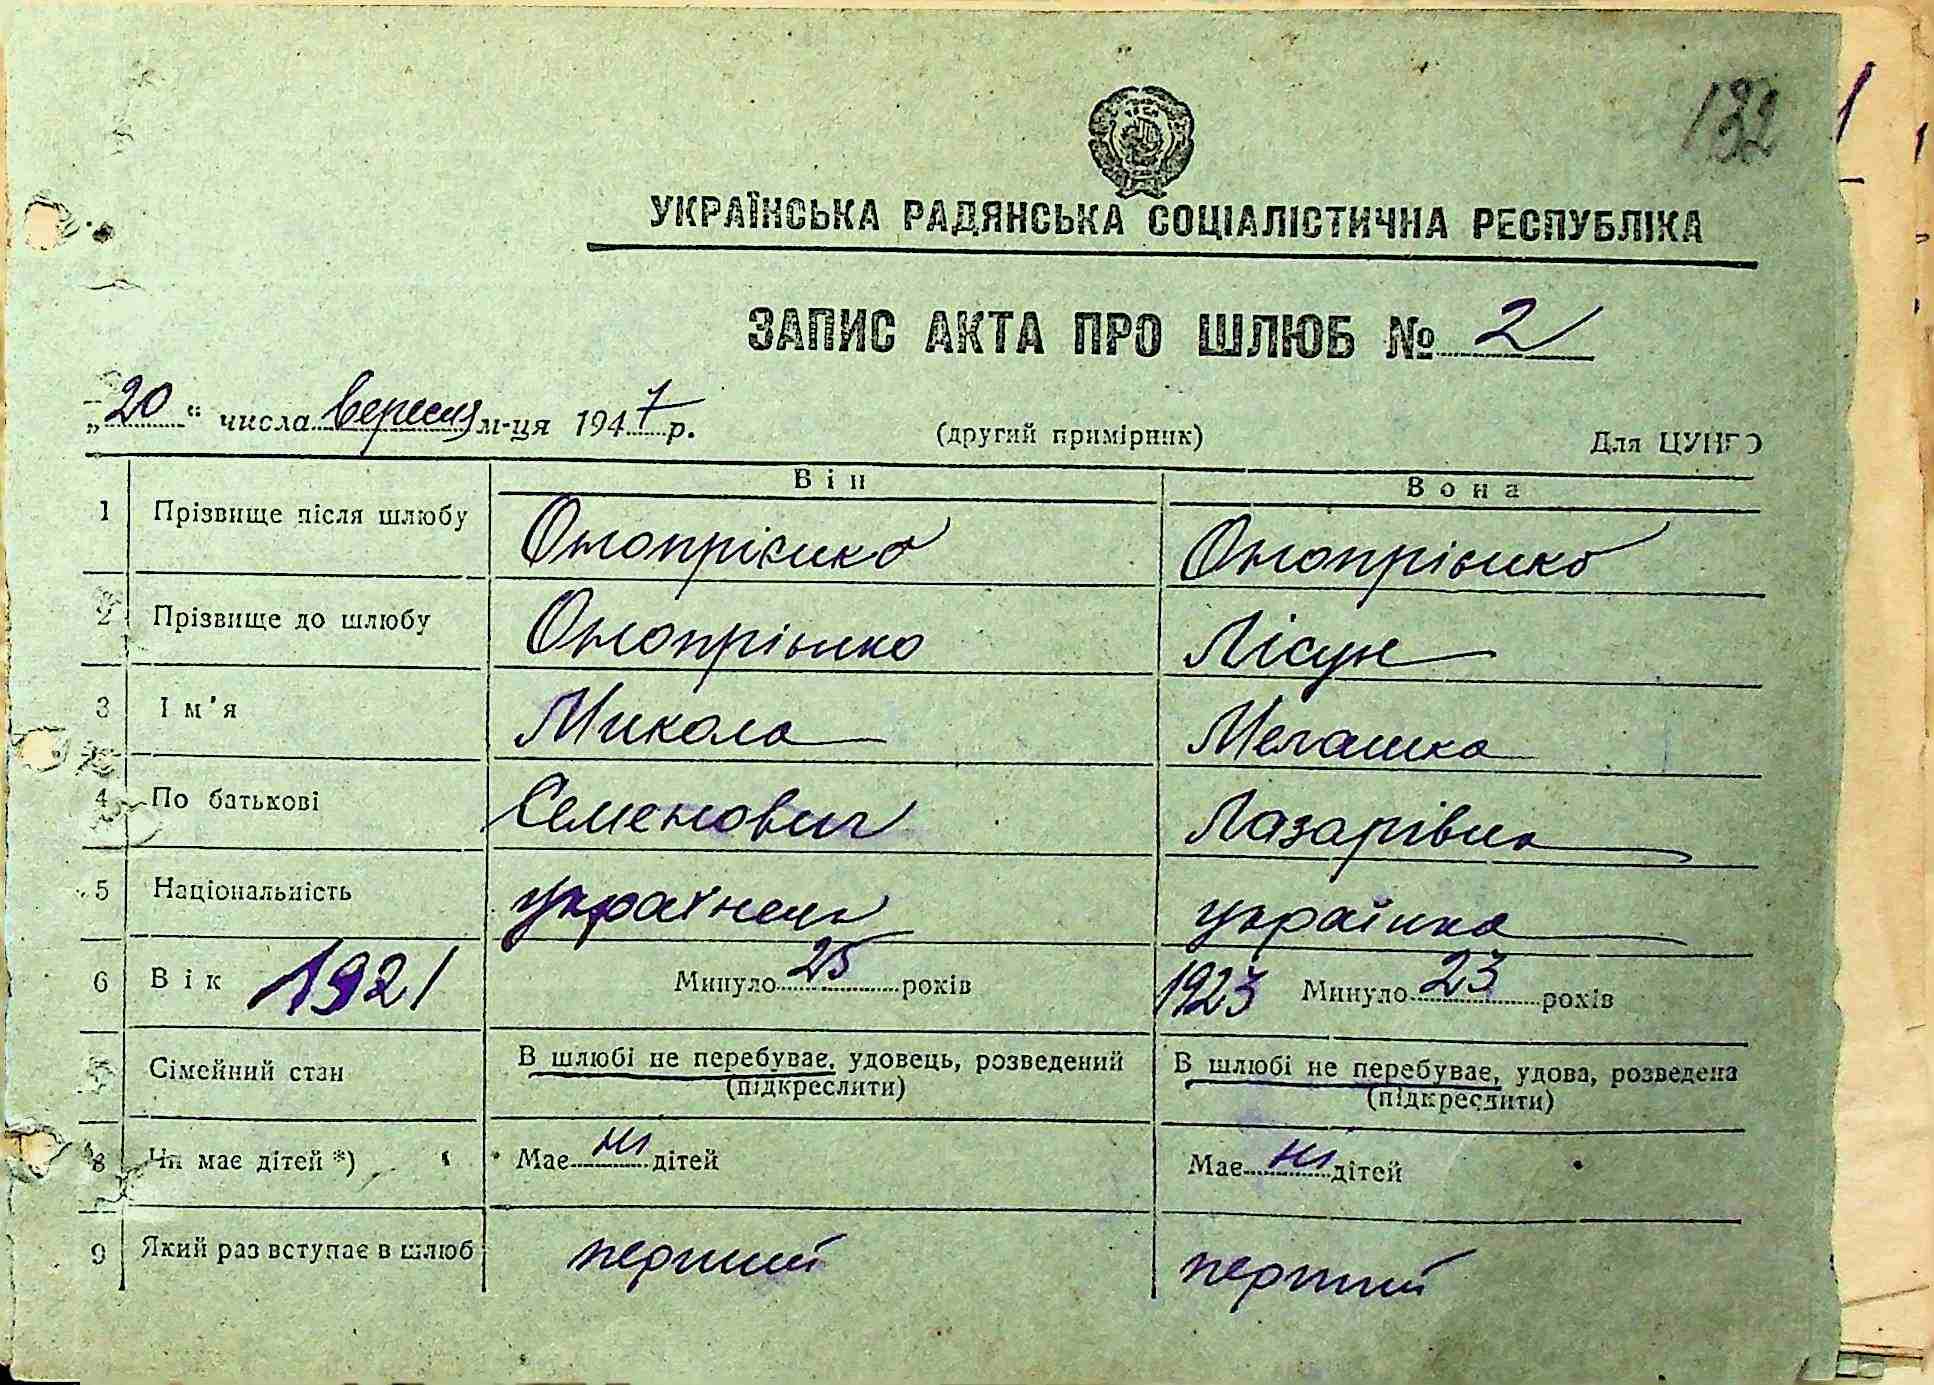 132
УКРАЇНСЬКА РАДЯНСЬКА СОЦІАЛІСТИЧНА РЕСПУБЛІКА
ЗАПИС АКТА ПРО ШЛЮБ № 2
„20“ числа вересня м-ця 1947 р. (другий примірник) Для ЦУНГО
Він Вона
1 Прізвище після шлюбу Онопрієнко Онопрієнко
2 Прізвище до шлюбу Онопрієнко Лісун
3 Ім'я Микола
4 По батькові Семенович Лазарівна
5 Національність українець українка
6 Вік 1921 Минуло 25 років 1923 Минуло 23 років
Сімейний стан В шлюбі не перебуває, удовець, розведений В шлюбі не перебуває, удова, розведена
(підкреслити) (підкреслити)
8 Чи має дітей *) Має ні дітей Має ні дітей
9 Який раз вступає в шлюб перший перший